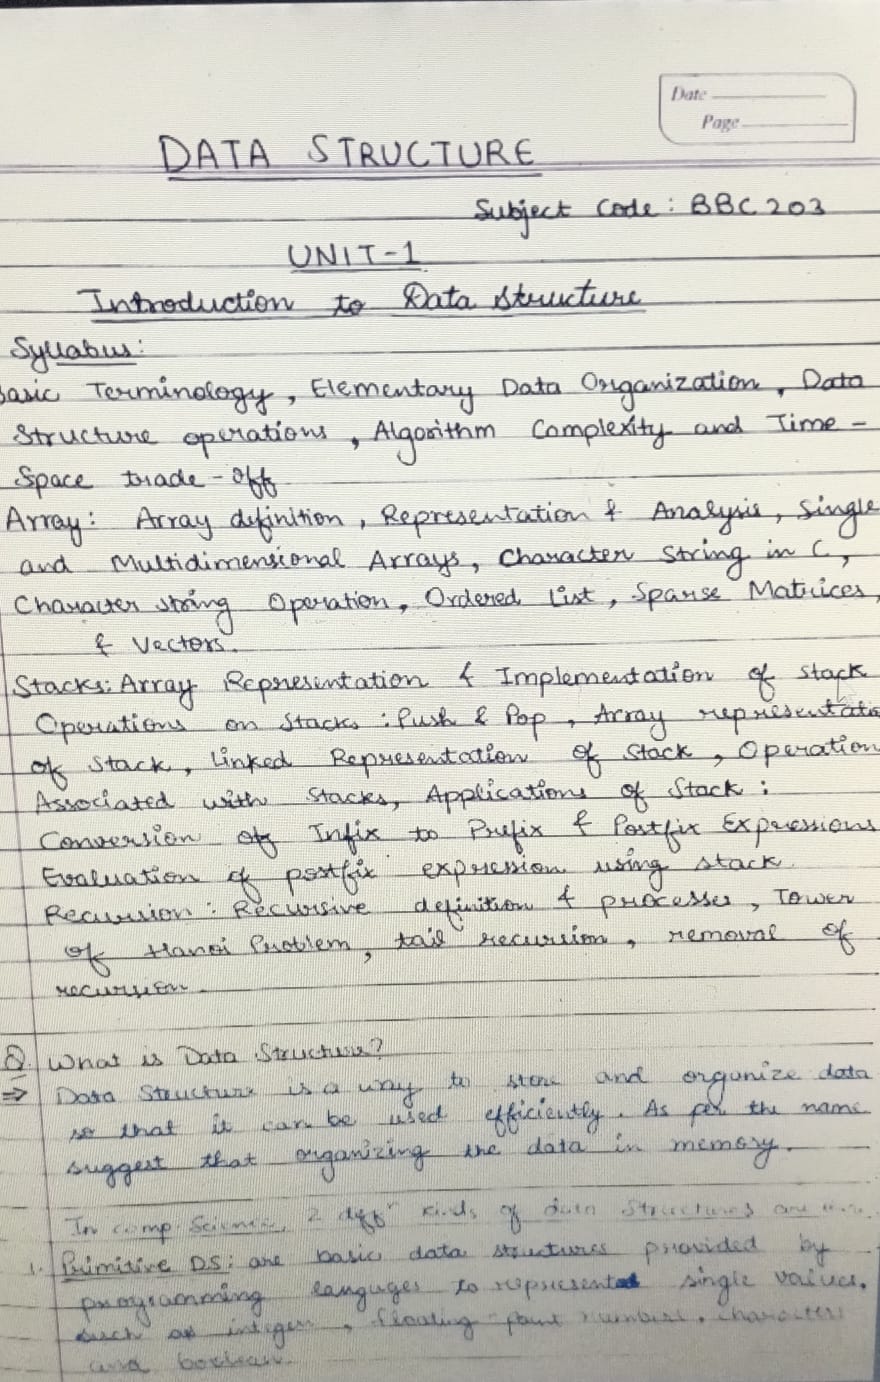 Date
Page
DATA STRUCTURE
Subject Code: BBC 203
UNIT-1
Introduction to Data Structure
Syllabus:
Basic Terminology, Elementary Data Organization, Data
Structure operations, Algorithm Complexity and Time-
Space trade-off
Array: Array definition, Representation & Analysis, Single
and Multidimensional Arrays, Character String in C,
Character string Operation, Ordered List, Sparse Matrices,
& Vectors.
Stacks: Array Representation & Implementation of stack
Operations on Stacks: Push & Pop, Array representatio
of Stack, Linked Representation of Stack, Operation
Associated with Stacks, Applications of Stack:
Conversion of Infix to Prefix & Postfix Expressions
Evaluation of postfix expression using stack.
Recursion: Recursive definition & processes, Tower
of Hanoi Problem, tail recursion, removal of
recursion.
Q. What is Data Structure?
⇒ Data Structure is a way to store and organize data
so that it can be used efficiently. As per the name
suggest that organizing the data in memory.
In comp. Science, 2 diffn kinds of data Structures are
1. Primitive DS: are basic data structures provided by
programming languges to represented single values.
such as integers, floating-point numbers, characters
and boolean.